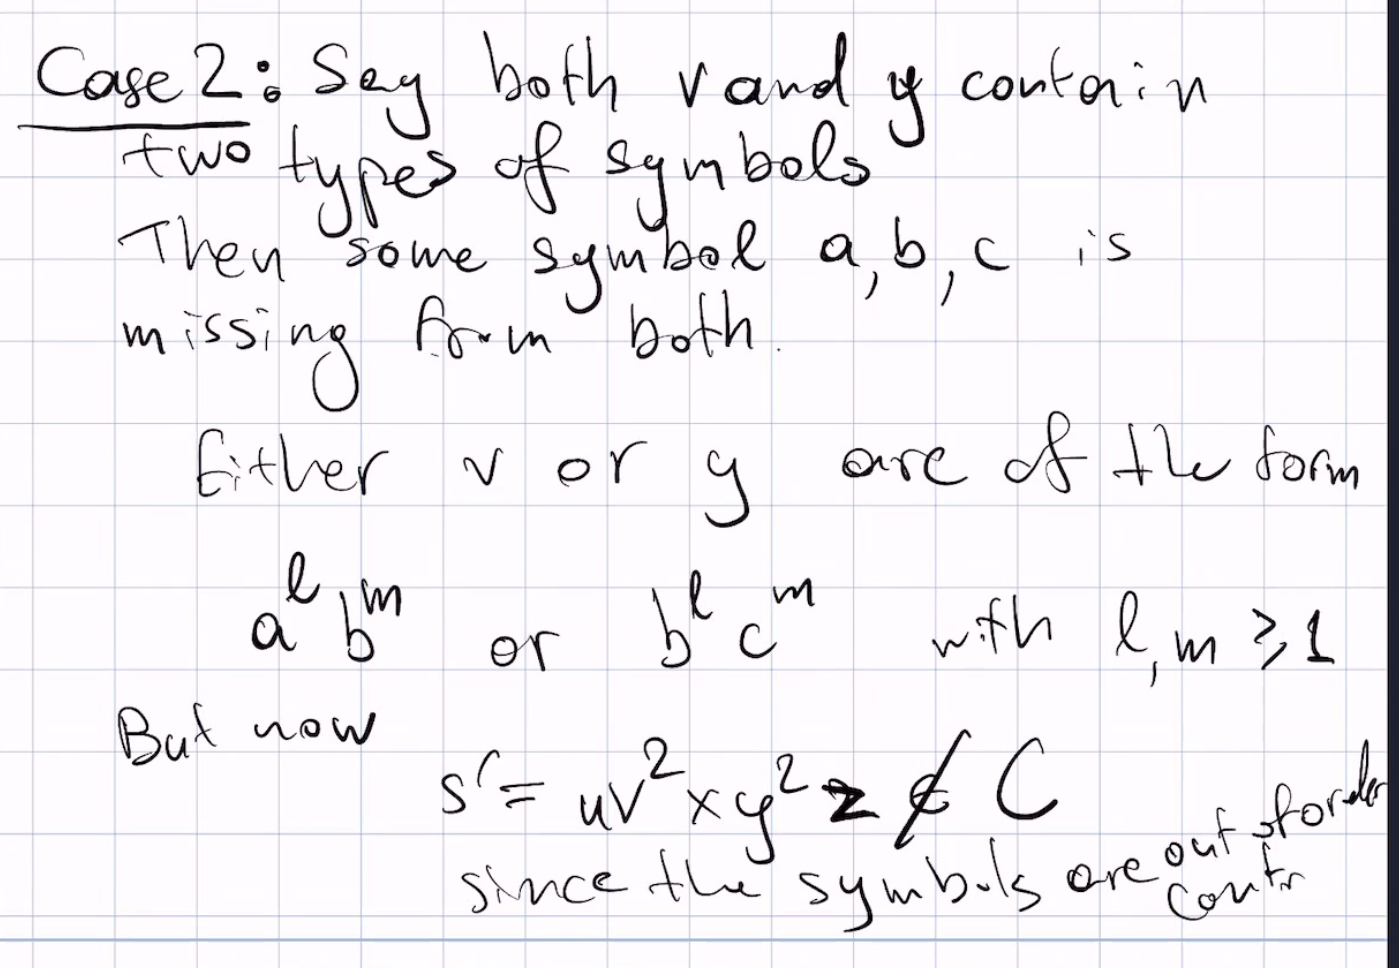 Case 2: Say both v and y contain
two types of symbols
Then some symbol a, b, c is
missing from both.
Either v or y are of the form
aˡ bᵐ or bˡ cᵐ with l, m ⩾ 1
But now
s' = uv²xy²z ∉ C
since the symbols are out of order
contr